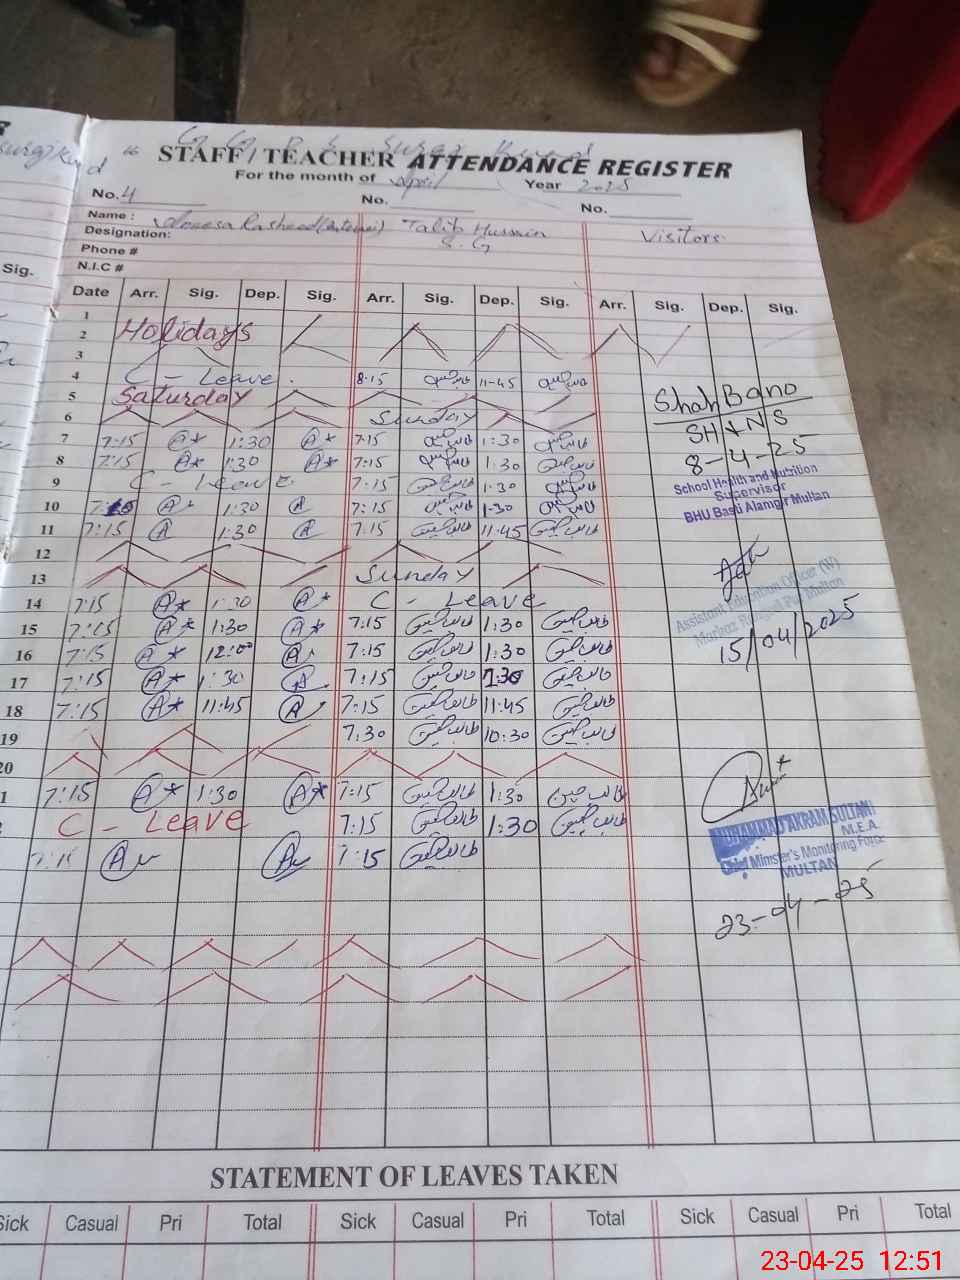 STAFF/TEACHER ATTENDANCE REGISTER
For the month of April Year 2025
No. 4 No. No.
Name : Rasheed Talib Hussain Visitors
Designation: S.G
Phone #
N.I.C #
Sig. Date Arr. Sig. Dep. Sig. Arr. Sig. Dep. Sig. Arr. Sig. Dep. Sig.
1
2 Holidays
3
4 C - Leave 8:15 طالب حسین 11-45 طالب حسین
5 Saturday
6 Sunday
7 7:15 A 1:30 A 7:15 طالب حسین 1:30 طالب حسین
8 7:15 A 1:30 A 7:15 طالب حسین 1:30 طالب حسین
9 C - Leave 7:15 طالب حسین 1-30 طالب حسین
10 A 1:30 A 7:15 طالب حسین 1-30 طالب حسین
11 7:15 A 1:30 A 7:15 طالب حسین 11-45 طالب حسین
12
13 Sunday
14 7:15 A 1:30 A C - Leave
15 7:15 A 1:30 A 7:15 طالب حسین 1:30 طالب حسین
16 7:15 A 12:00 A 7:15 طالب حسین 1:30 طالب حسین
17 7:15 A 1:30 A 7:15 طالب حسین 1:30 طالب حسین
18 7:15 A 11:45 A 7:15 طالب حسین 11-45 طالب حسین
19 7:30 طالب حسین 10:30 طالب حسین
20
1 7:15 A 1:30 A 7:15 طالب حسین 1:30 طالب حسین
C - Leave 7:15 طالب حسین 1:30 طالب حسین
7:15 A A 7:15 طالب حسین
Shah Bano
SH & NS
8-4-25
School Health and Nutrition
Supervisor
BHU Basti Alamgir Multan
Assistant Education Officer (W)
Markaz Multan
15/04/2025
MUHAMMAD AKRAM SULTANI
M.E.A.
Chief Minister's Monitoring Force
MULTAN
23-04-25
STATEMENT OF LEAVES TAKEN
Sick Casual Pri Total Sick Casual Pri Total Sick Casual Pri Total
23-04-25 12:51